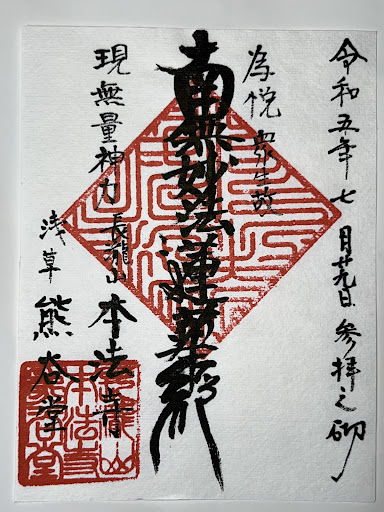 令和五年七月廿九日 参拝之砌
為悦衆生故
南無妙法蓮華経
現無量神力
長瀧山本法寺
浅草熊谷堂